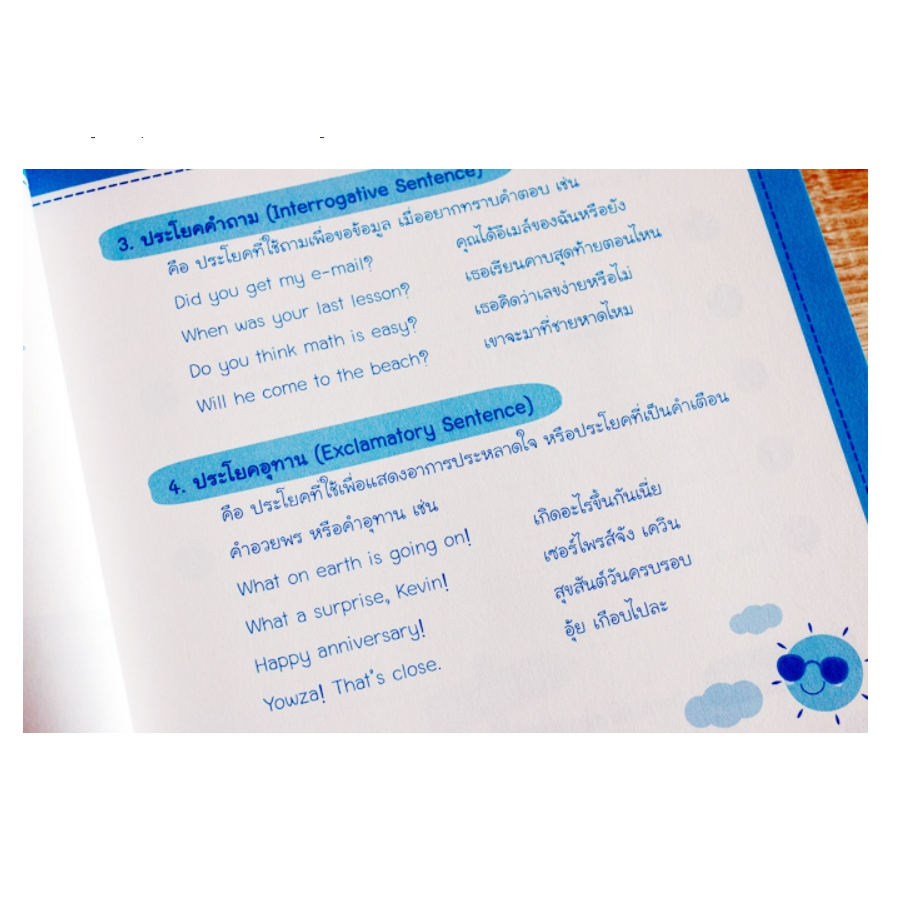 3. ประโยคคำถาม (Interrogative Sentence)
คือ ประโยคที่ใช้ถามเพื่อขอข้อมูล เมื่ออยากทราบคำตอบ เช่น
Did you get my e-mail? คุณได้อีเมล์ของฉันหรือยัง
When was your last lesson? เธอเรียนคาบสุดท้ายตอนไหน
Do you think math is easy? เธอคิดว่าเลขง่ายหรือไม่
Will he come to the beach? เขาจะมาที่ชายหาดไหม
4. ประโยคอุทาน (Exclamatory Sentence)
คือ ประโยคที่ใช้เพื่อแสดงอาการประหลาดใจ หรือประโยคที่เป็นคำเตือน
คำอวยพร หรือคำอุทาน เช่น
What on earth is going on! เกิดอะไรขึ้นกันเนี่ย
What a surprise, Kevin! เซอร์ไพรส์จัง เควิน
Happy anniversary! สุขสันต์วันครบรอบ
Yowza! That's close. อุ้ย เกือบไปละ